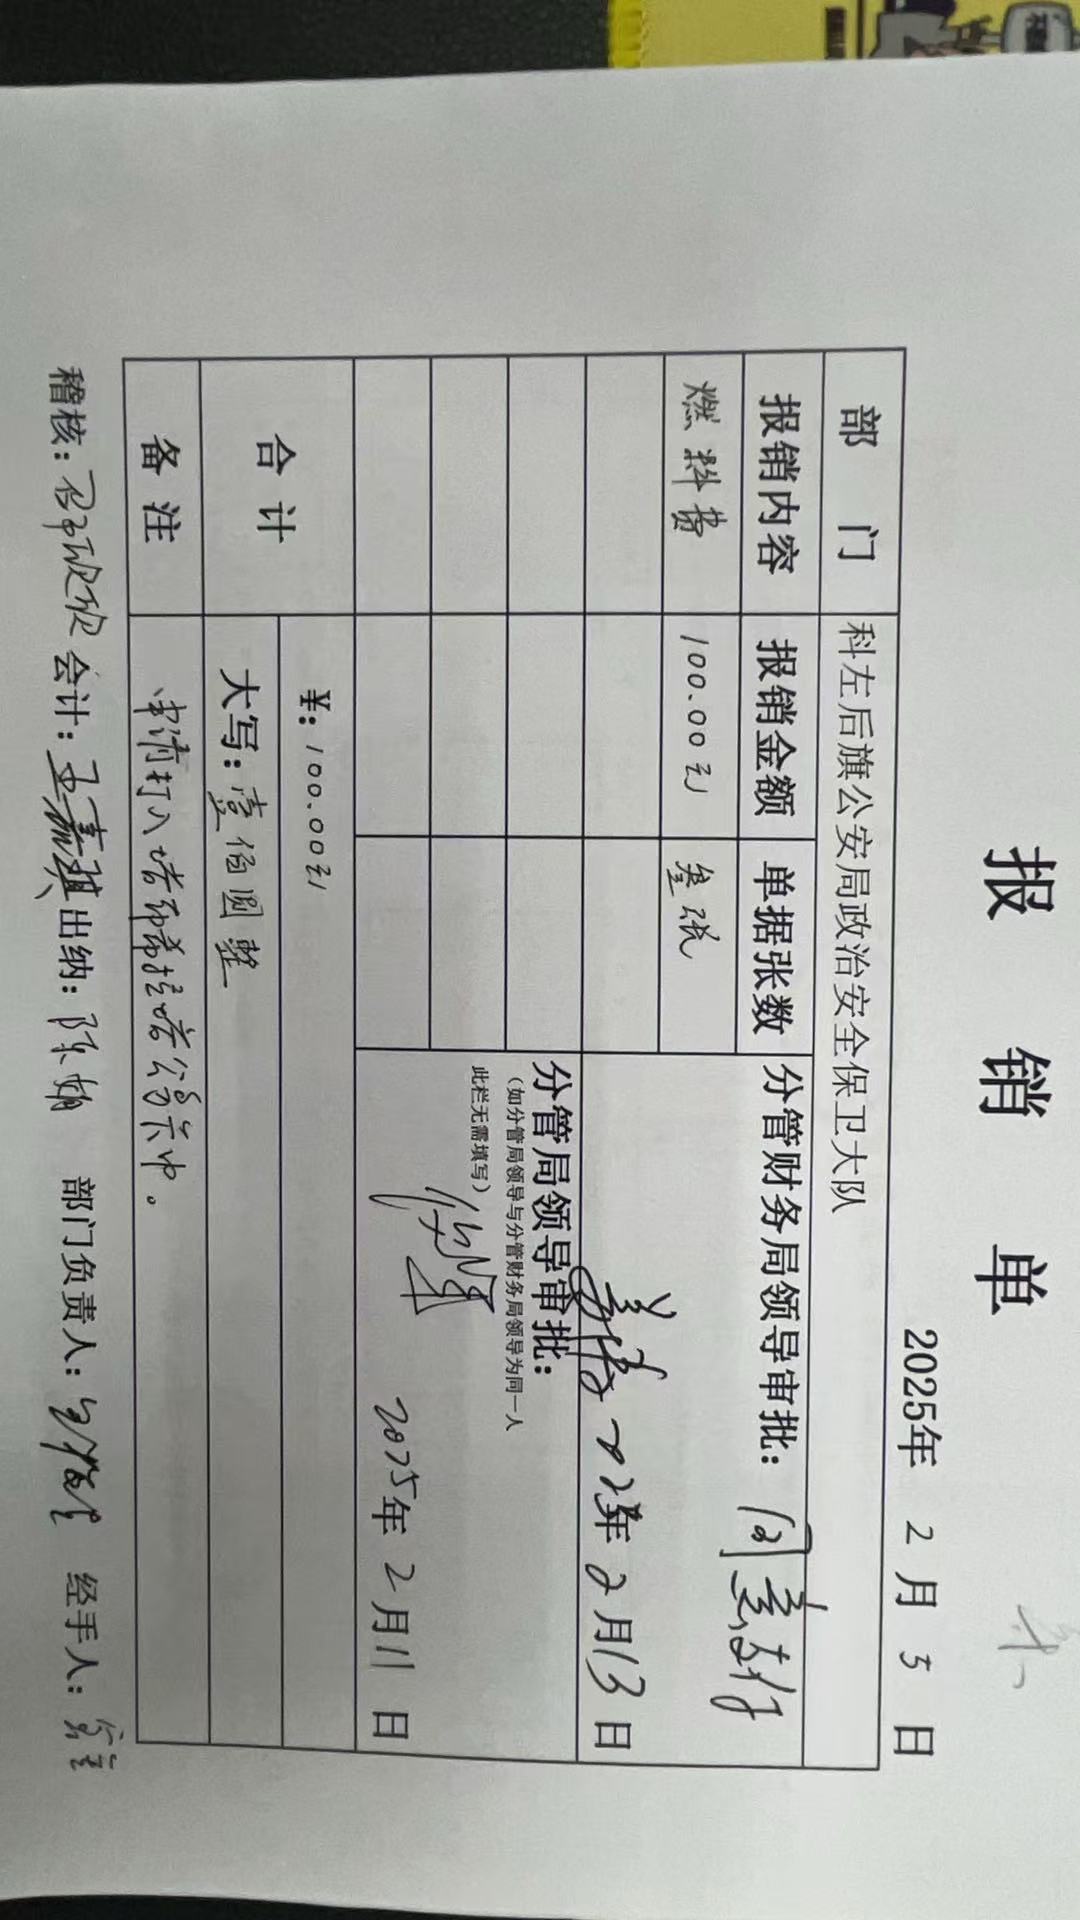 报 销 单
2025年 2 月 5 日
部 门 科左后旗公安局政治安全保卫大队
报销内容 报销金额 单据张数 分管财务局领导审批：同意支付
燃料费 100.00元 叁张
年2月13日
分管局领导审批：
（如分管局领导与分管财务局领导为同一人
此栏无需填写）
2025年2月11日
合 计 ¥：100.00元
大写：壹佰圆整
备 注 申请打入
稽核： 会计：王嘉琪 出纳：陈娟 部门负责人： 经手人：